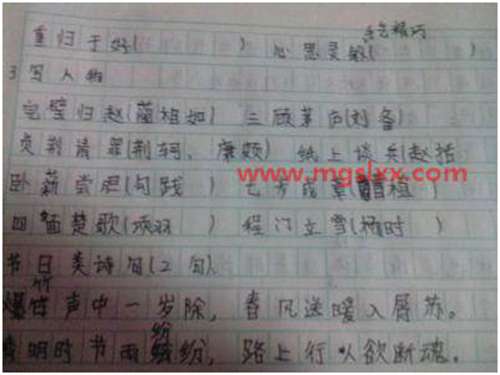 手舌精巧
重归于好( ) 心思灵敏(
3写人物
完璧归赵(蔺相如) 三顾茅庐(刘备)
负荆请罪(荆轲、廉颇) 纸上谈兵(赵括
www.mgslxx.com
卧薪尝胆(句践) 七步成章(曹植)
四面楚歌(项羽) 程门立雪(杨时)
节日类诗句(2句)
竹
爆竹声中一岁除,春风送暖入屠苏。
纷
清明时节雨纷纷,路上行人欲断魂。